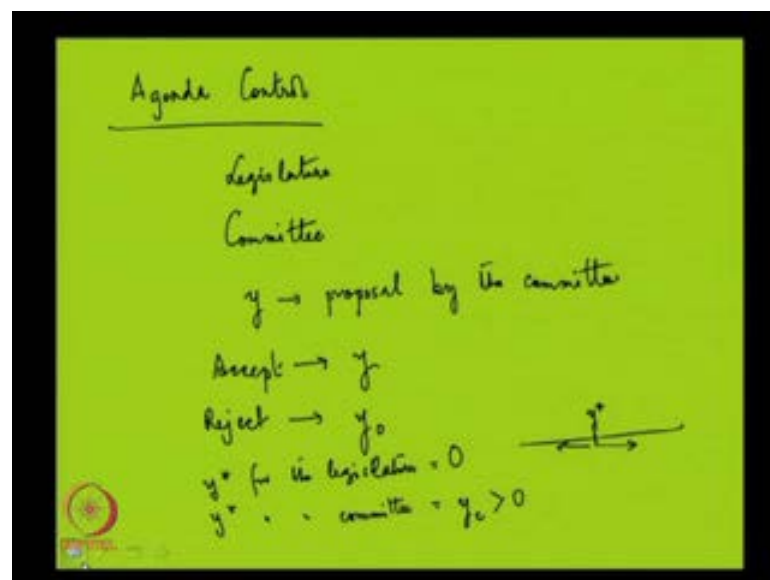 Agenda Control
Legislature
Committee
y → proposal by the committee
Accept → y
Reject → y₀
y* for the legislature = 0
y* " " committee = y_c > 0
y*